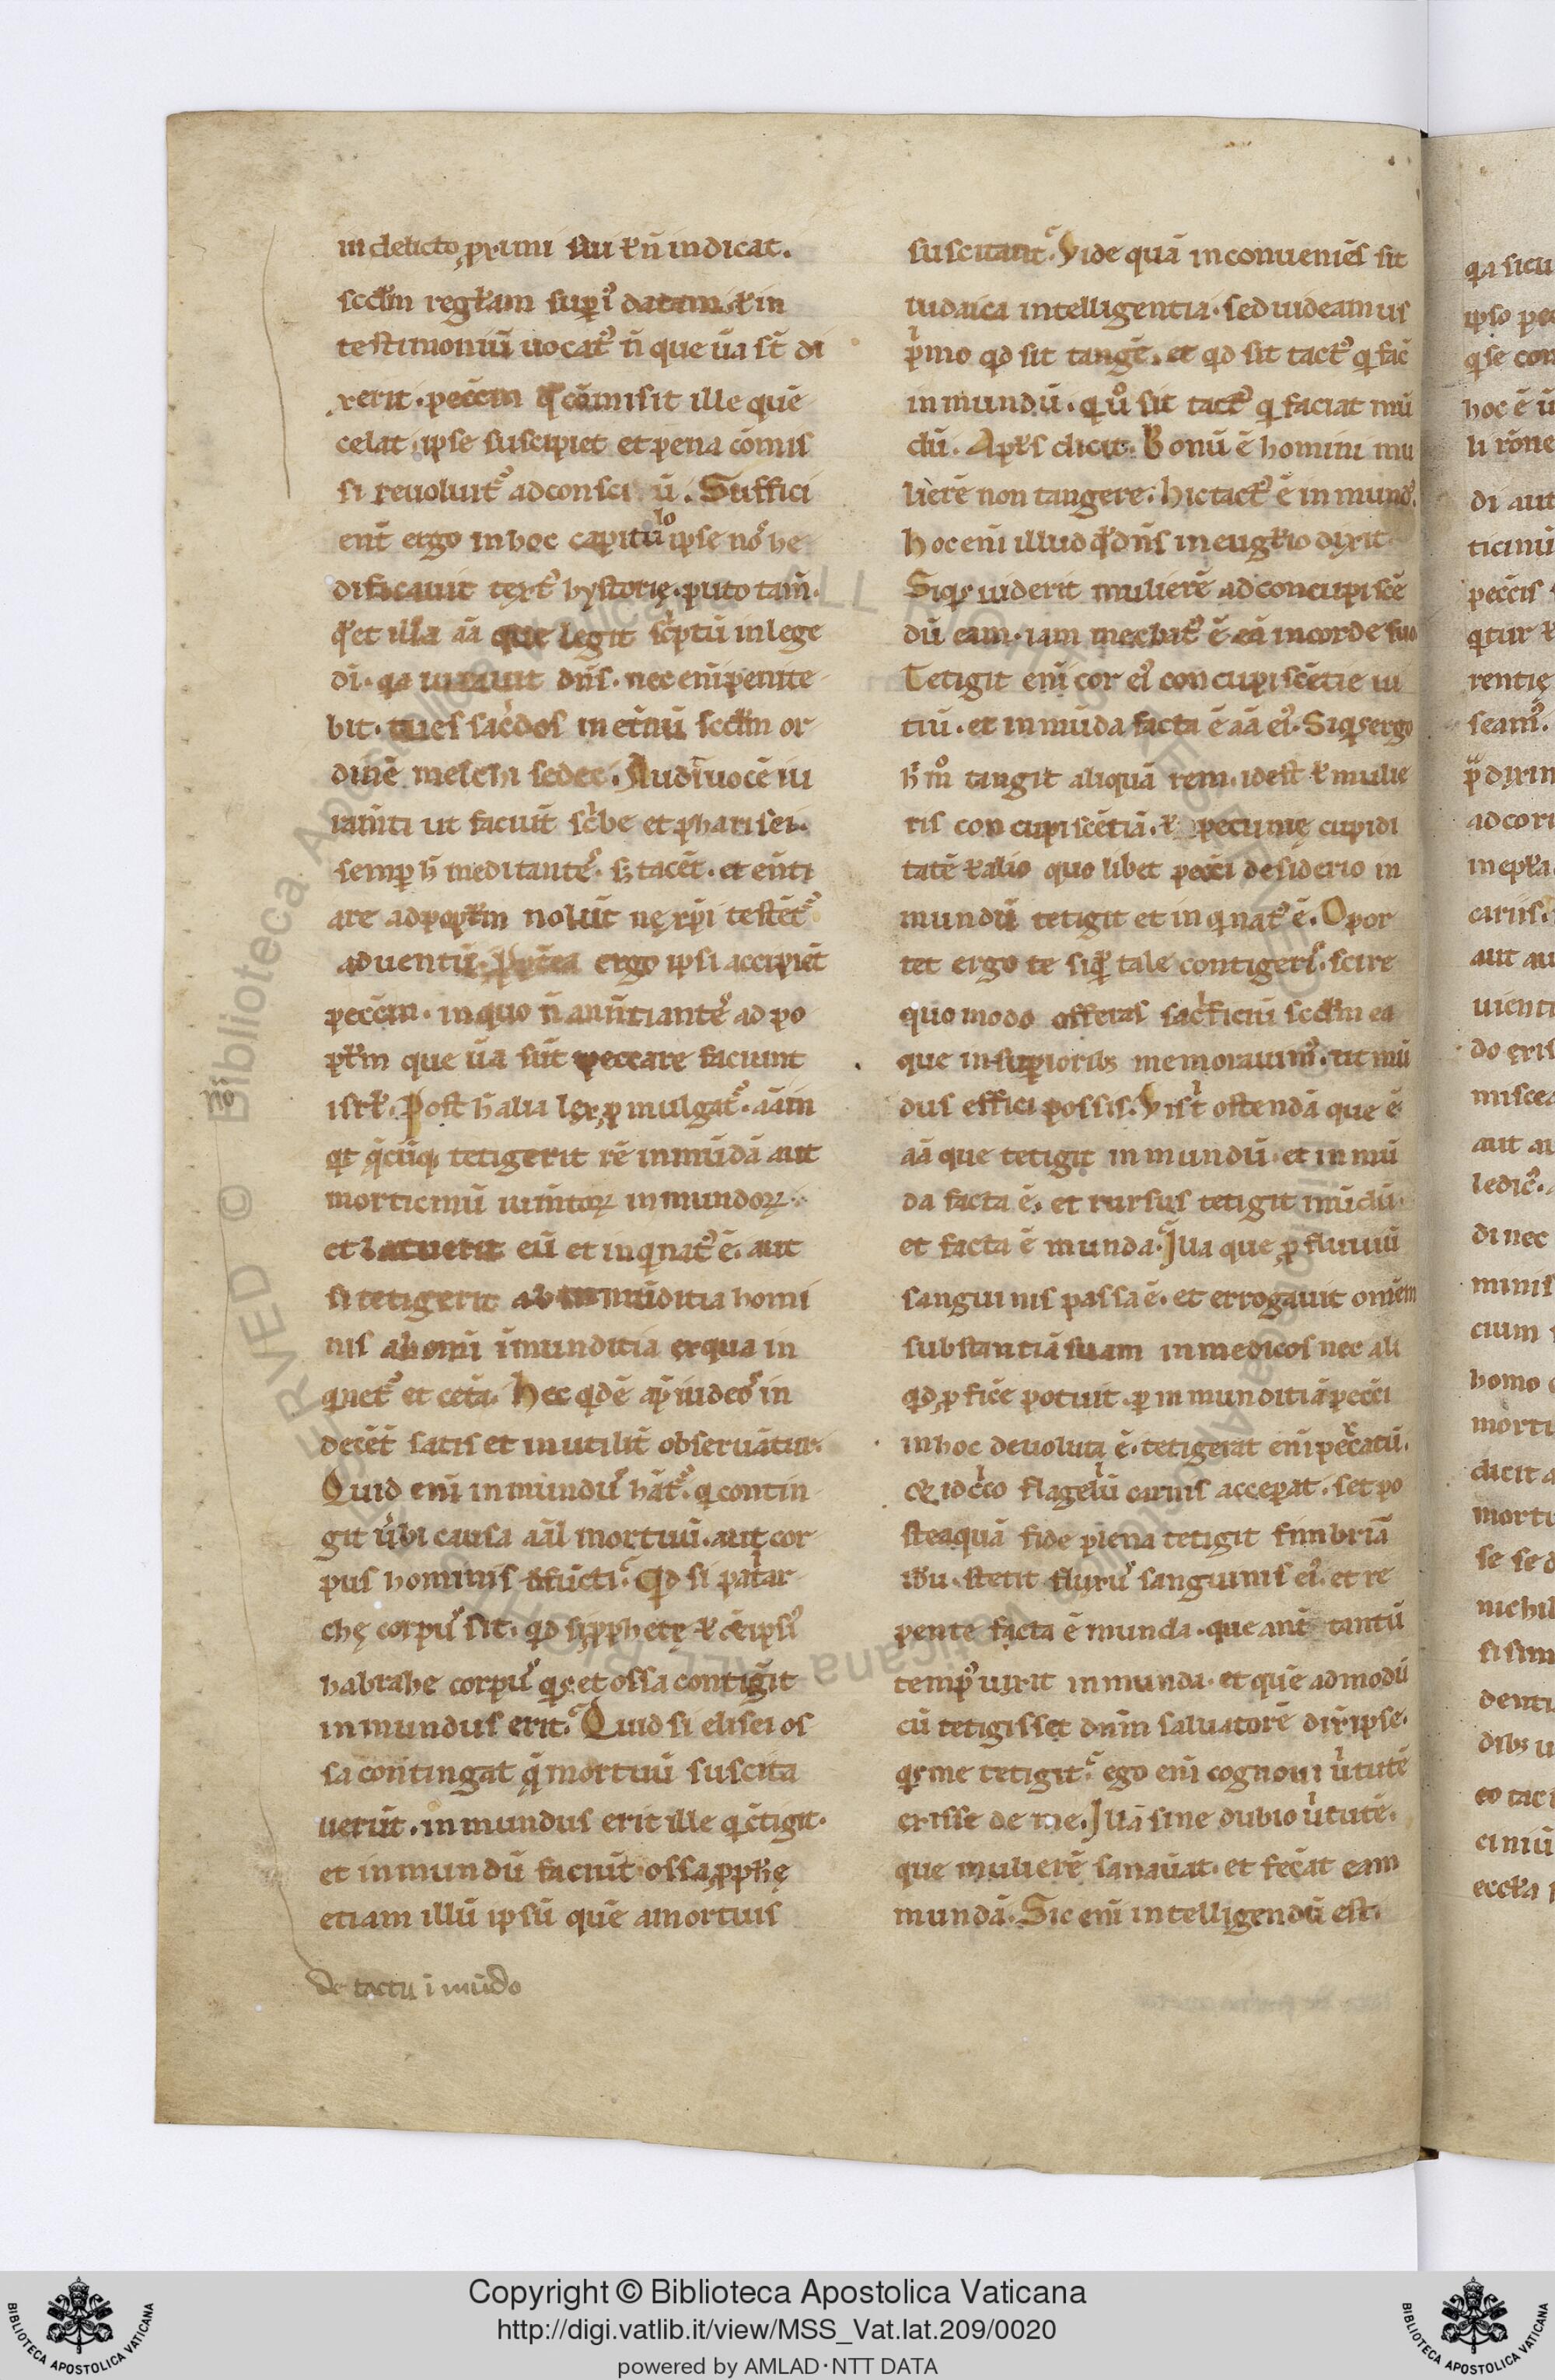 in delicto ꝓximi sui & n̄ indicat.
scd̄m reglam supi᾽ datam. & in
testimoniū uocat᾽ n̄ que ūa st̄ di
xerit. peccm q̄ cōmisit ille quē
celat ipse suscipiet et pena cōmis
si reuoluit᾽ ad consciū. Suffici
ent̄ ergo in hoc capitulo ipse nos he
dificauit text᾽ hystorię. puto tam̄.
qd̛ et illa aīa que legit sc̛ptū in lege
dī. qa iurauit dn̄s. nec enī penite
bit. tu es sac̛dos in et̄nū scd̄m or
dinē melchisedec. Audi uocē iu
ramti ut faciūt sc̛be et pharisei.
semp h̄ meditantes. & tacēt. et enūti
are ad popłm nolūt nę xp̄i testēt᾽
aduentū. ergo ipsi accipiēt
peccm. in quo n̄ anūtiantes ad po
płm que ūa sūt peccare faciunt
isrł. Post h̄ alia lex ꝓmulgat᾽. aīa in
qt q̄cūq tetigerit rē inmūdā aut
morticinū iumtoꝝ inmundoꝝ.
et latuerit eū et inqinat᾽ ē. aut
si tetigerit ab inmūditia homi
nis ab omī īmunditia ex qua in
qinet᾽ et cet̄a. Hec qdē ap̄ iudeos in
decēt satis et inutilit̄ obseruātur.
Quid enī inmundus hāt᾽. qi contin
git ūbi causa aīal mortuū. aut cor
pus hominis dfūcti. Qd si pat̛ar
chę corpus sit. qd si ꝓphetę & ipsi᾽
habrahe corpus qs et ossa contigit
inmundus erit. Quid si elisei os
sa contingat q̄ mortuū suscita
uerūt. inmundus erit ille qi ctigit.
et inmundū faciūt ossa ꝓphę
etiam illū ipsū quē a mortuis
de tactu īmūdo
suscitant. Vide quā inconueniēs sit
iudaica intelligentia. sed uideamus
p̛mo qd sit tangē. et qd sit tact᾽ qi fac̄
inmundū. qū sit tact᾽ qi faciat mū
dū. Apłs dicit. Bonū ē homini mu
lierē non tangere. hic tact᾽ ē inmund᾽.
hoc enī illud qd̛ dn̄s in eugłio dixit
Siqs uiderit mulierē ad concupiscē
dū eam. iam mechat᾽ ē eā in corde suo
Tetigit enī cor ei᾽ concupiscētie ui
tiū. et inmūda facta ē aīa ei᾽. Siqs ergo
h̄ mō tangit aliquā rem. idest & mulie
ris concupiscētiā. & pecunię cupidi
tatē & alio quo libet pecci desiderio in
mundū tetigit et inqinat᾽ ē. Opor
tet ergo te siqd̛ tale contigeris. scire
quo modo offeras sac̛ficiū scd̄m ea
que in supioribꝫ memorauim᾽. ut mū
dus effici possis. Vis t̛ ostendā que ē
aīa que tetigit inmundū. et inmū
da facta ē. et rursus tetigit mūdū.
et facta ē munda. Illa que ꝓfluuiū
sanguinis passa ē. et errogauit omēm
substantiā suam in medicos nec ali
qd ꝓficē potuit. p inmunditiā pecci
in hoc deuoluta ē. tetigerat enī peccatū.
& idc̛co flagelū carnis acceperat. set po
steaquā fide plena tetigit fimbriā
ihu. stetit fluxus sanguinis ei᾽. et re
pente facta ē munda. que ant̄ tantū
temp᾽ uixit inmunda. et quē admodū
cū tetigisset dnm̄ saluatorē dix̄ ipse.
qs me tetigit. ego enī cognoui ūtutē
exisse de me. Illā sine dubio ūtutē.
que mulierē sanauāt. et fecāt eam
mundā. Sic enī intelligendū est.
Copyright © Biblioteca Apostolica Vaticana
http://digi.vatlib.it/view/MSS_Vat.lat.209/0020
powered by AMLAD·NTT DATA
BIBLIOTECA APOSTOLICA VATICANA
BIBLIOTECA APOSTOLICA VATICANA